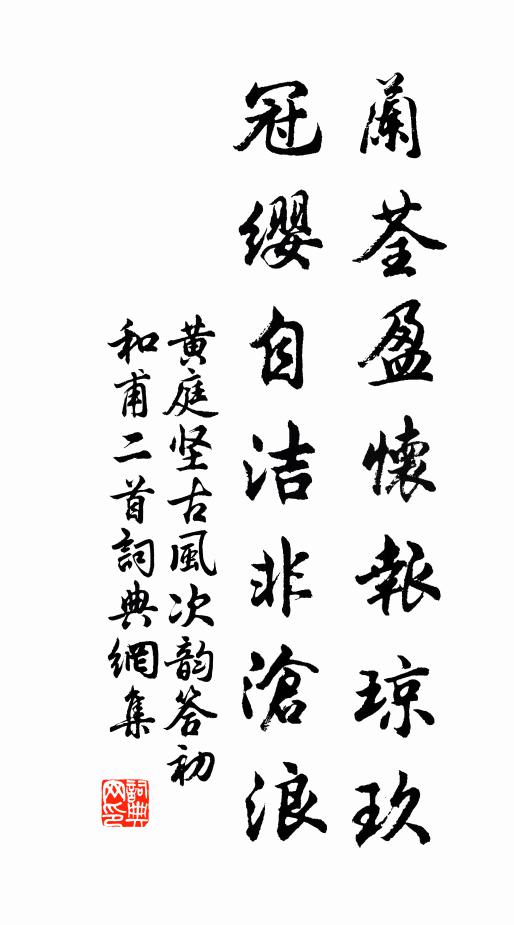 蘭荃盈懷報琼玖
冠缨自洁非滄浪
黄庭坚古風次韵答初
和甫二首詞典網集
詞典
网印